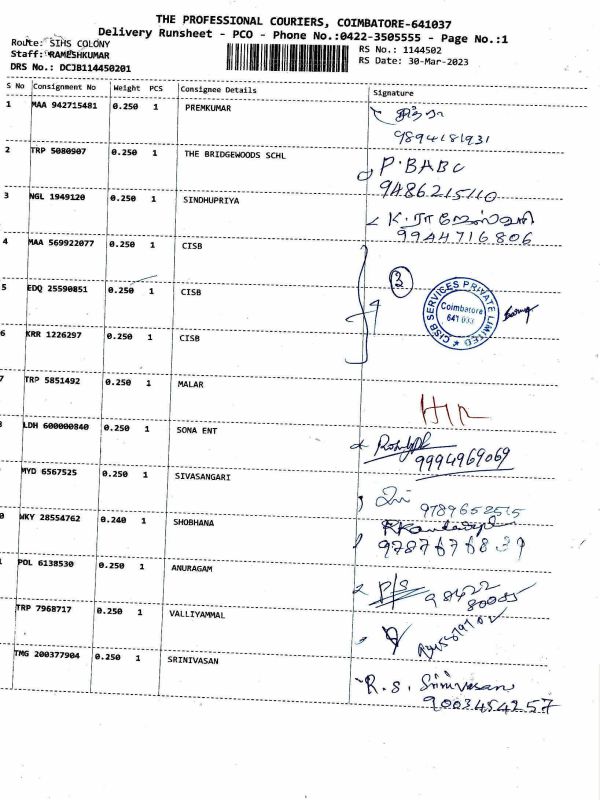 THE PROFESSIONAL COURIERS, COIMBATORE-641037
Delivery Runsheet - PCO - Phone No.:0422-3505555 - Page No.:1
Route: SIHS COLONY
RS No.: 1144502
Staff: RAMESHKUMAR
RS Date: 30-Mar-2023
DRS No.: DCJB114450201
S No Consignment No Weight PCS Consignee Details Signature
1 MAA 942715481 0.250 1 PREMKUMAR
9894181931
2 TRP 5080907 0.250 1 THE BRIDGEWOODS SCHL P.BABU
9486215110
3 NGL 1949120 0.250 1 SINDHUPRIYA K. ராஜேஸ்வரி
9944716806
4 MAA 569922077 0.250 1 CISB
3
5 EDQ 25590851 0.250 1 CISB
CISB SERVICES PRIVATE LIMITED
Coimbatore
641 033
6 KRR 1226297 0.250 1 CISB
7 TRP 5851492 0.250 1 MALAR
LDH 600000840 0.250 1 SONA ENT
9994969069
MYD 6567525 0.250 1 SIVASANGARI
9789652515
0 WKY 28554762 0.240 1 SHOBHANA
9787676839
POL 6138530 0.250 1 ANURAGAM P/s 98422
80005
TRP 7968717 0.250 1 VALLIYAMMAL
TMG 200377904 0.250 1 SRINIVASAN R. S. Srinivasan
9003454257